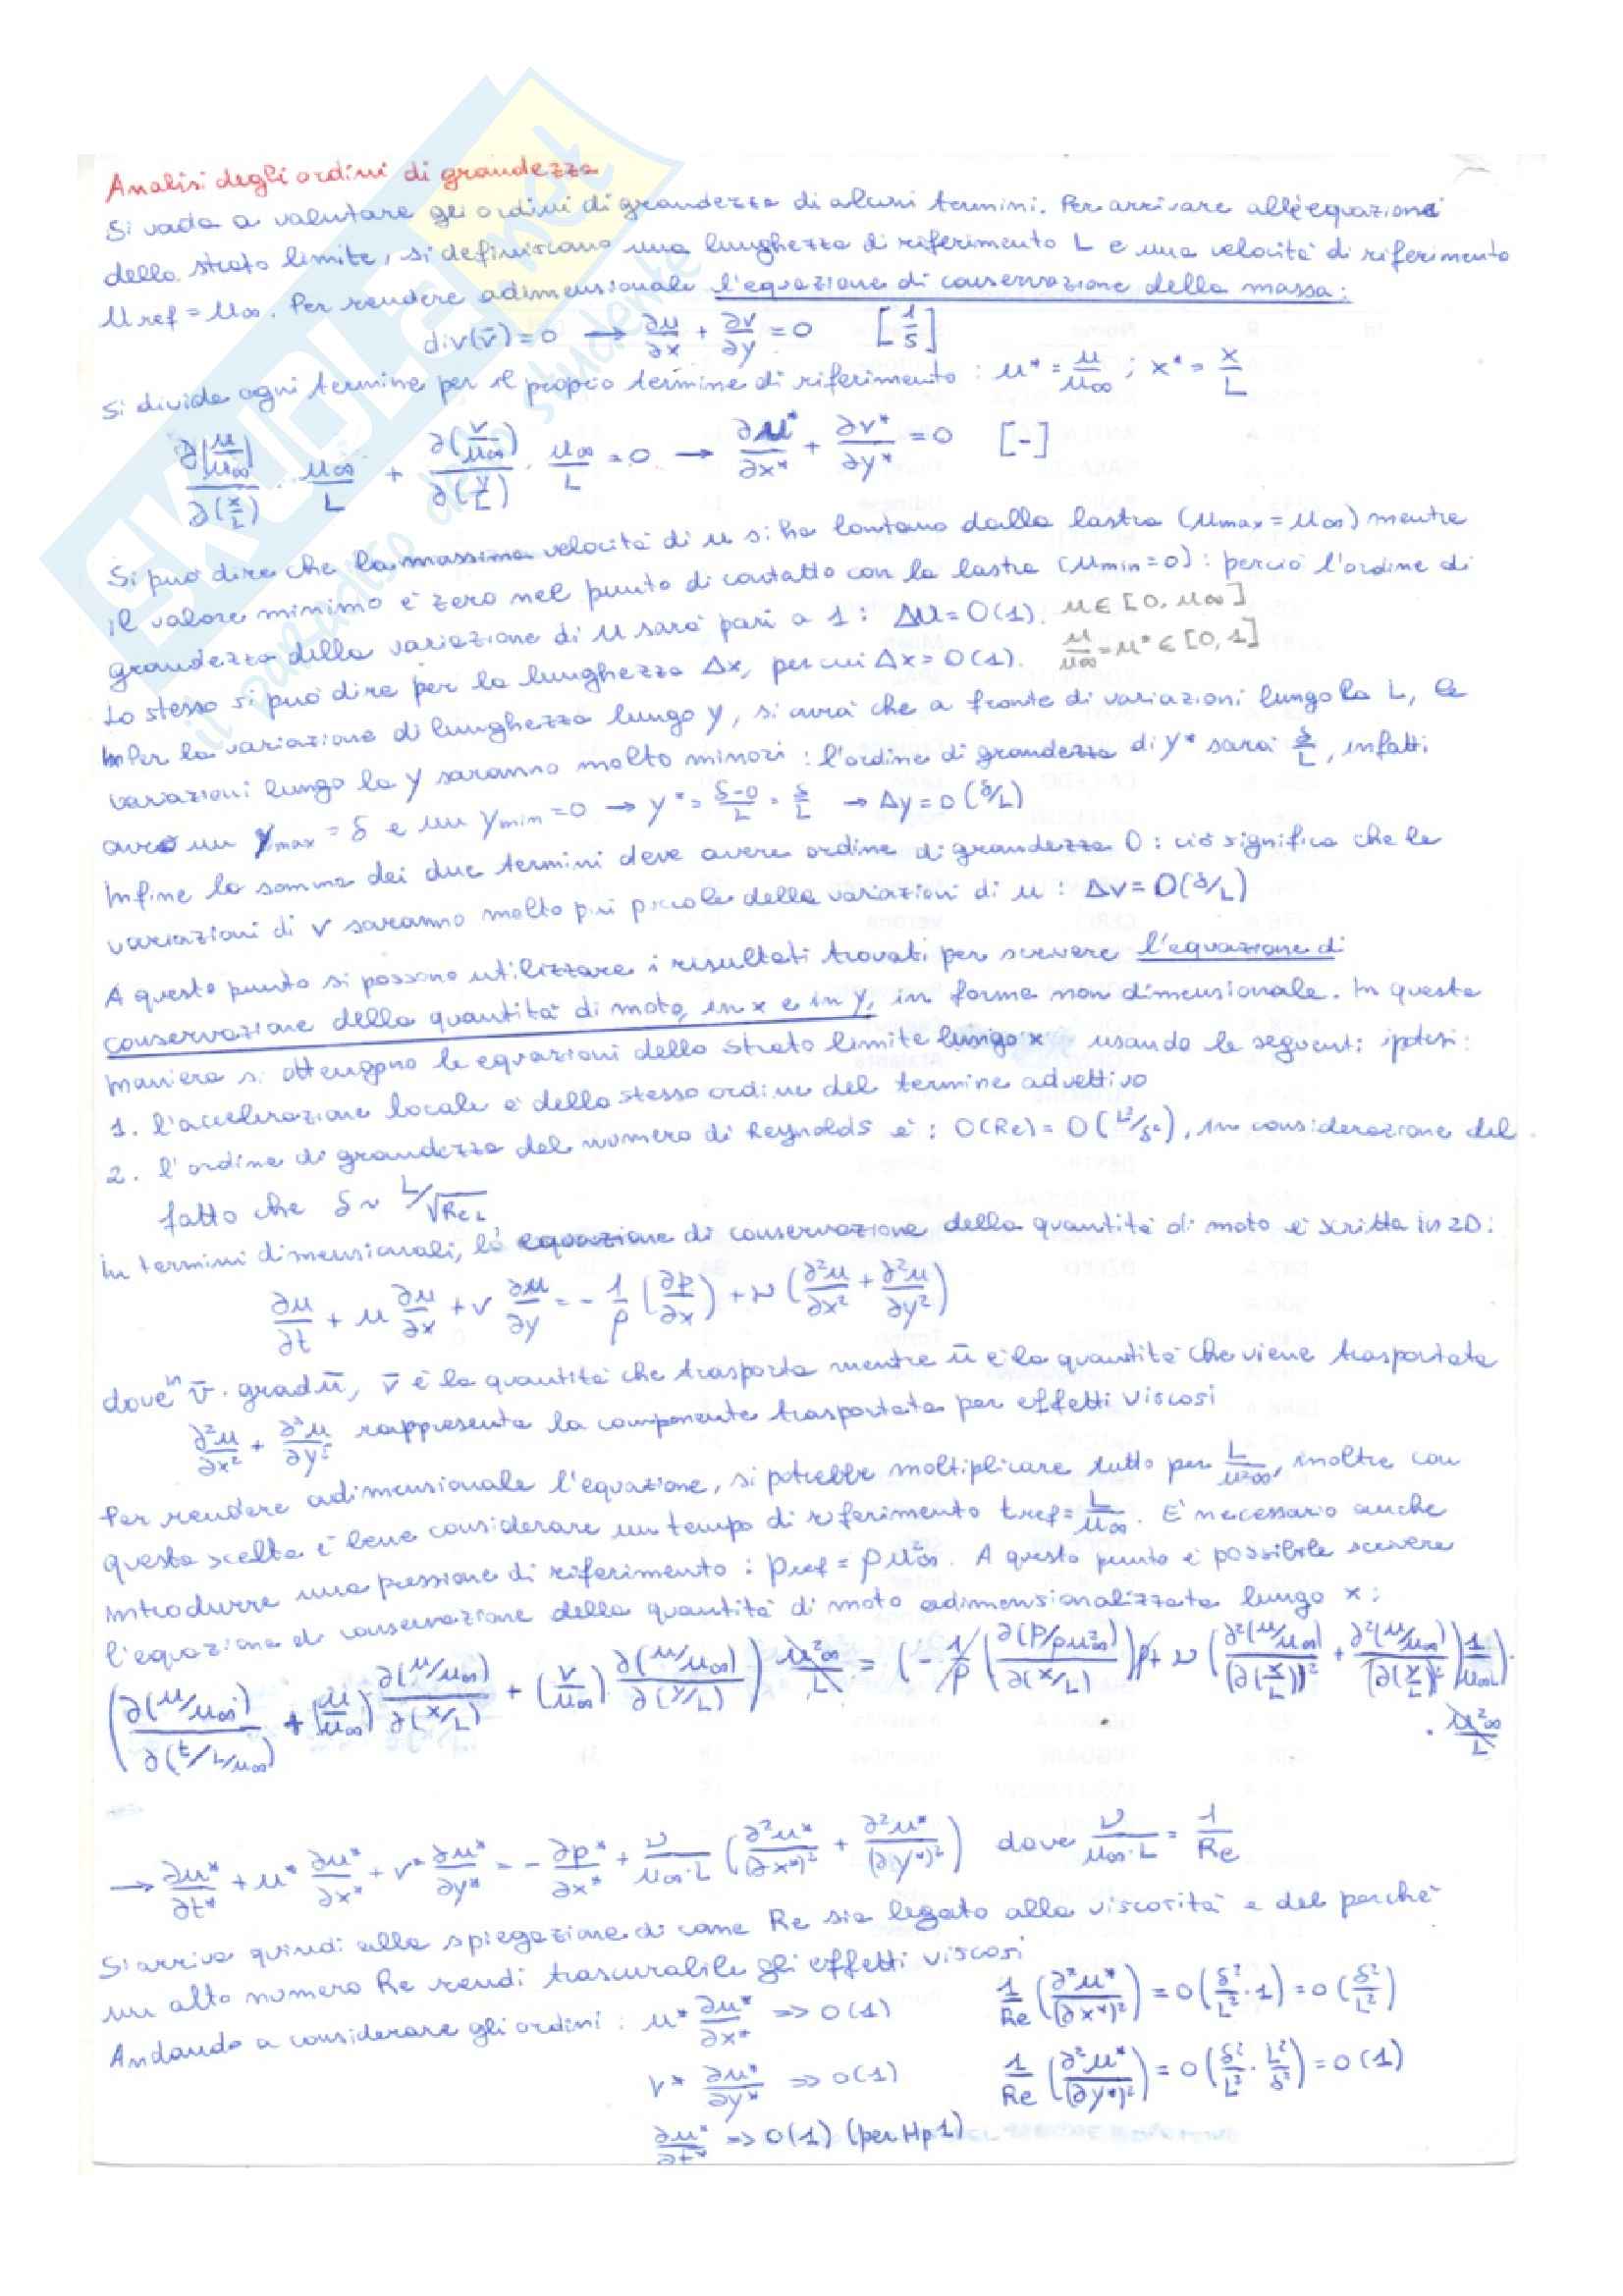 Analisi degli ordini di grandezza
Si vada a valutare gli ordini di grandezza di alcuni termini. Per arrivare all'equazione
dello strato limite, si definiscano una lunghezza di riferimento L e una velocità di riferimento
u ref = u∞. Per rendere adimensionale l'equazione di conservazione della massa:
div(v̄) = 0 → ∂u/∂x + ∂v/∂y = 0 [1/s]
Si divide ogni termine per il proprio termine di riferimento: u* = u/u∞ ; x* = x/L
∂(u/u∞)/∂(x/L) · u∞/L + ∂(v/u∞)/∂(y/L) · u∞/L = 0 → ∂u*/∂x* + ∂v*/∂y* = 0 [-]
Si può dire che la massima velocità di u si ha lontano dalla lastra (umax = u∞) mentre
il valore minimo è zero nel punto di contatto con la lastra (umin = 0): perciò l'ordine di
grandezza della variazione di u sarà pari a 1: Δu = O(1). u ∈ [0, u∞]
u/u∞ = u* ∈ [0, 1]
Lo stesso si può dire per la lunghezza Δx, per cui Δx = O(1).
Per la variazione di lunghezza lungo y, si avrà che a fronte di variazioni lungo la L, le
variazioni lungo la y saranno molto minori: l'ordine di grandezza di y* sarà δ/L, infatti
avrò un ymax = δ e un ymin = 0 → y* = δ-0/L = δ/L → Δy = O(δ/L)
Infine la somma dei due termini deve avere ordine di grandezza 0: ciò significa che le
variazioni di v saranno molto più piccole delle variazioni di u: Δv = O(δ/L)
A questo punto si possono utilizzare i risultati trovati per scrivere l'equazione di
conservazione della quantità di moto, in x e in y, in forma non dimensionale. In questa
maniera si ottengono le equazioni dello strato limite lungo x usando le seguenti ipotesi:
1. l'accelerazione locale è dello stesso ordine del termine advettivo
2. l'ordine di grandezza del numero di Reynolds è: O(Re) = O(L²/δ²), in considerazione del
fatto che δ ~ L/√ReL
In termini dimensionali, la equazione di conservazione della quantità di moto è scritta in 2D:
∂u/∂t + u ∂u/∂x + v ∂u/∂y = - 1/ρ (∂p/∂x) + ν (∂²u/∂x² + ∂²u/∂y²)
dove in v̄ · grad ū, v̄ è la quantità che trasporta mentre ū è la quantità che viene trasportata
∂²u/∂x² + ∂²u/∂y² rappresenta la componente trasportata per effetti viscosi
Per rendere adimensionale l'equazione, si potrebbe moltiplicare tutto per L/u²∞, inoltre con
questa scelta è bene considerare un tempo di riferimento tref = L/u∞. È necessario anche
introdurre una pressione di riferimento: pref = ρu²∞. A questo punto è possibile scrivere
l'equazione di conservazione della quantità di moto adimensionalizzata lungo x:
(∂(u/u∞)/∂(t/L/u∞) + (u/u∞) ∂(u/u∞)/∂(x/L) + (v/u∞) ∂(u/u∞)/∂(y/L)) u²∞/L = (- 1/ρ (∂(p/ρu²∞)/∂(x/L)) ρ + ν (∂²(u/u∞)/(∂(x/L))² + ∂²(u/u∞)/(∂(y/L))²) 1/u∞L) ·
· u²∞/L
→ ∂u*/∂t* + u* ∂u*/∂x* + v* ∂u*/∂y* = - ∂p*/∂x* + ν/u∞·L (∂²u*/(∂x*)² + ∂²u*/(∂y*)²) dove ν/u∞·L = 1/Re
Si arriva quindi alla spiegazione di come Re sia legato alla viscosità e del perchè
un alto numero Re rendi trascurabile gli effetti viscosi
Andando a considerare gli ordini: u* ∂u*/∂x* => O(1) 1/Re (∂²u*/(∂x*)²) = O(δ²/L² · 1) = O(δ²/L²)
v* ∂u*/∂y* => O(1) 1/Re (∂²u*/(∂y*)²) = O(δ²/L² · L²/δ²) = O(1)
∂u*/∂t* => O(1) (per Hp1)
SKUOLA.net
il paradiso dello studente